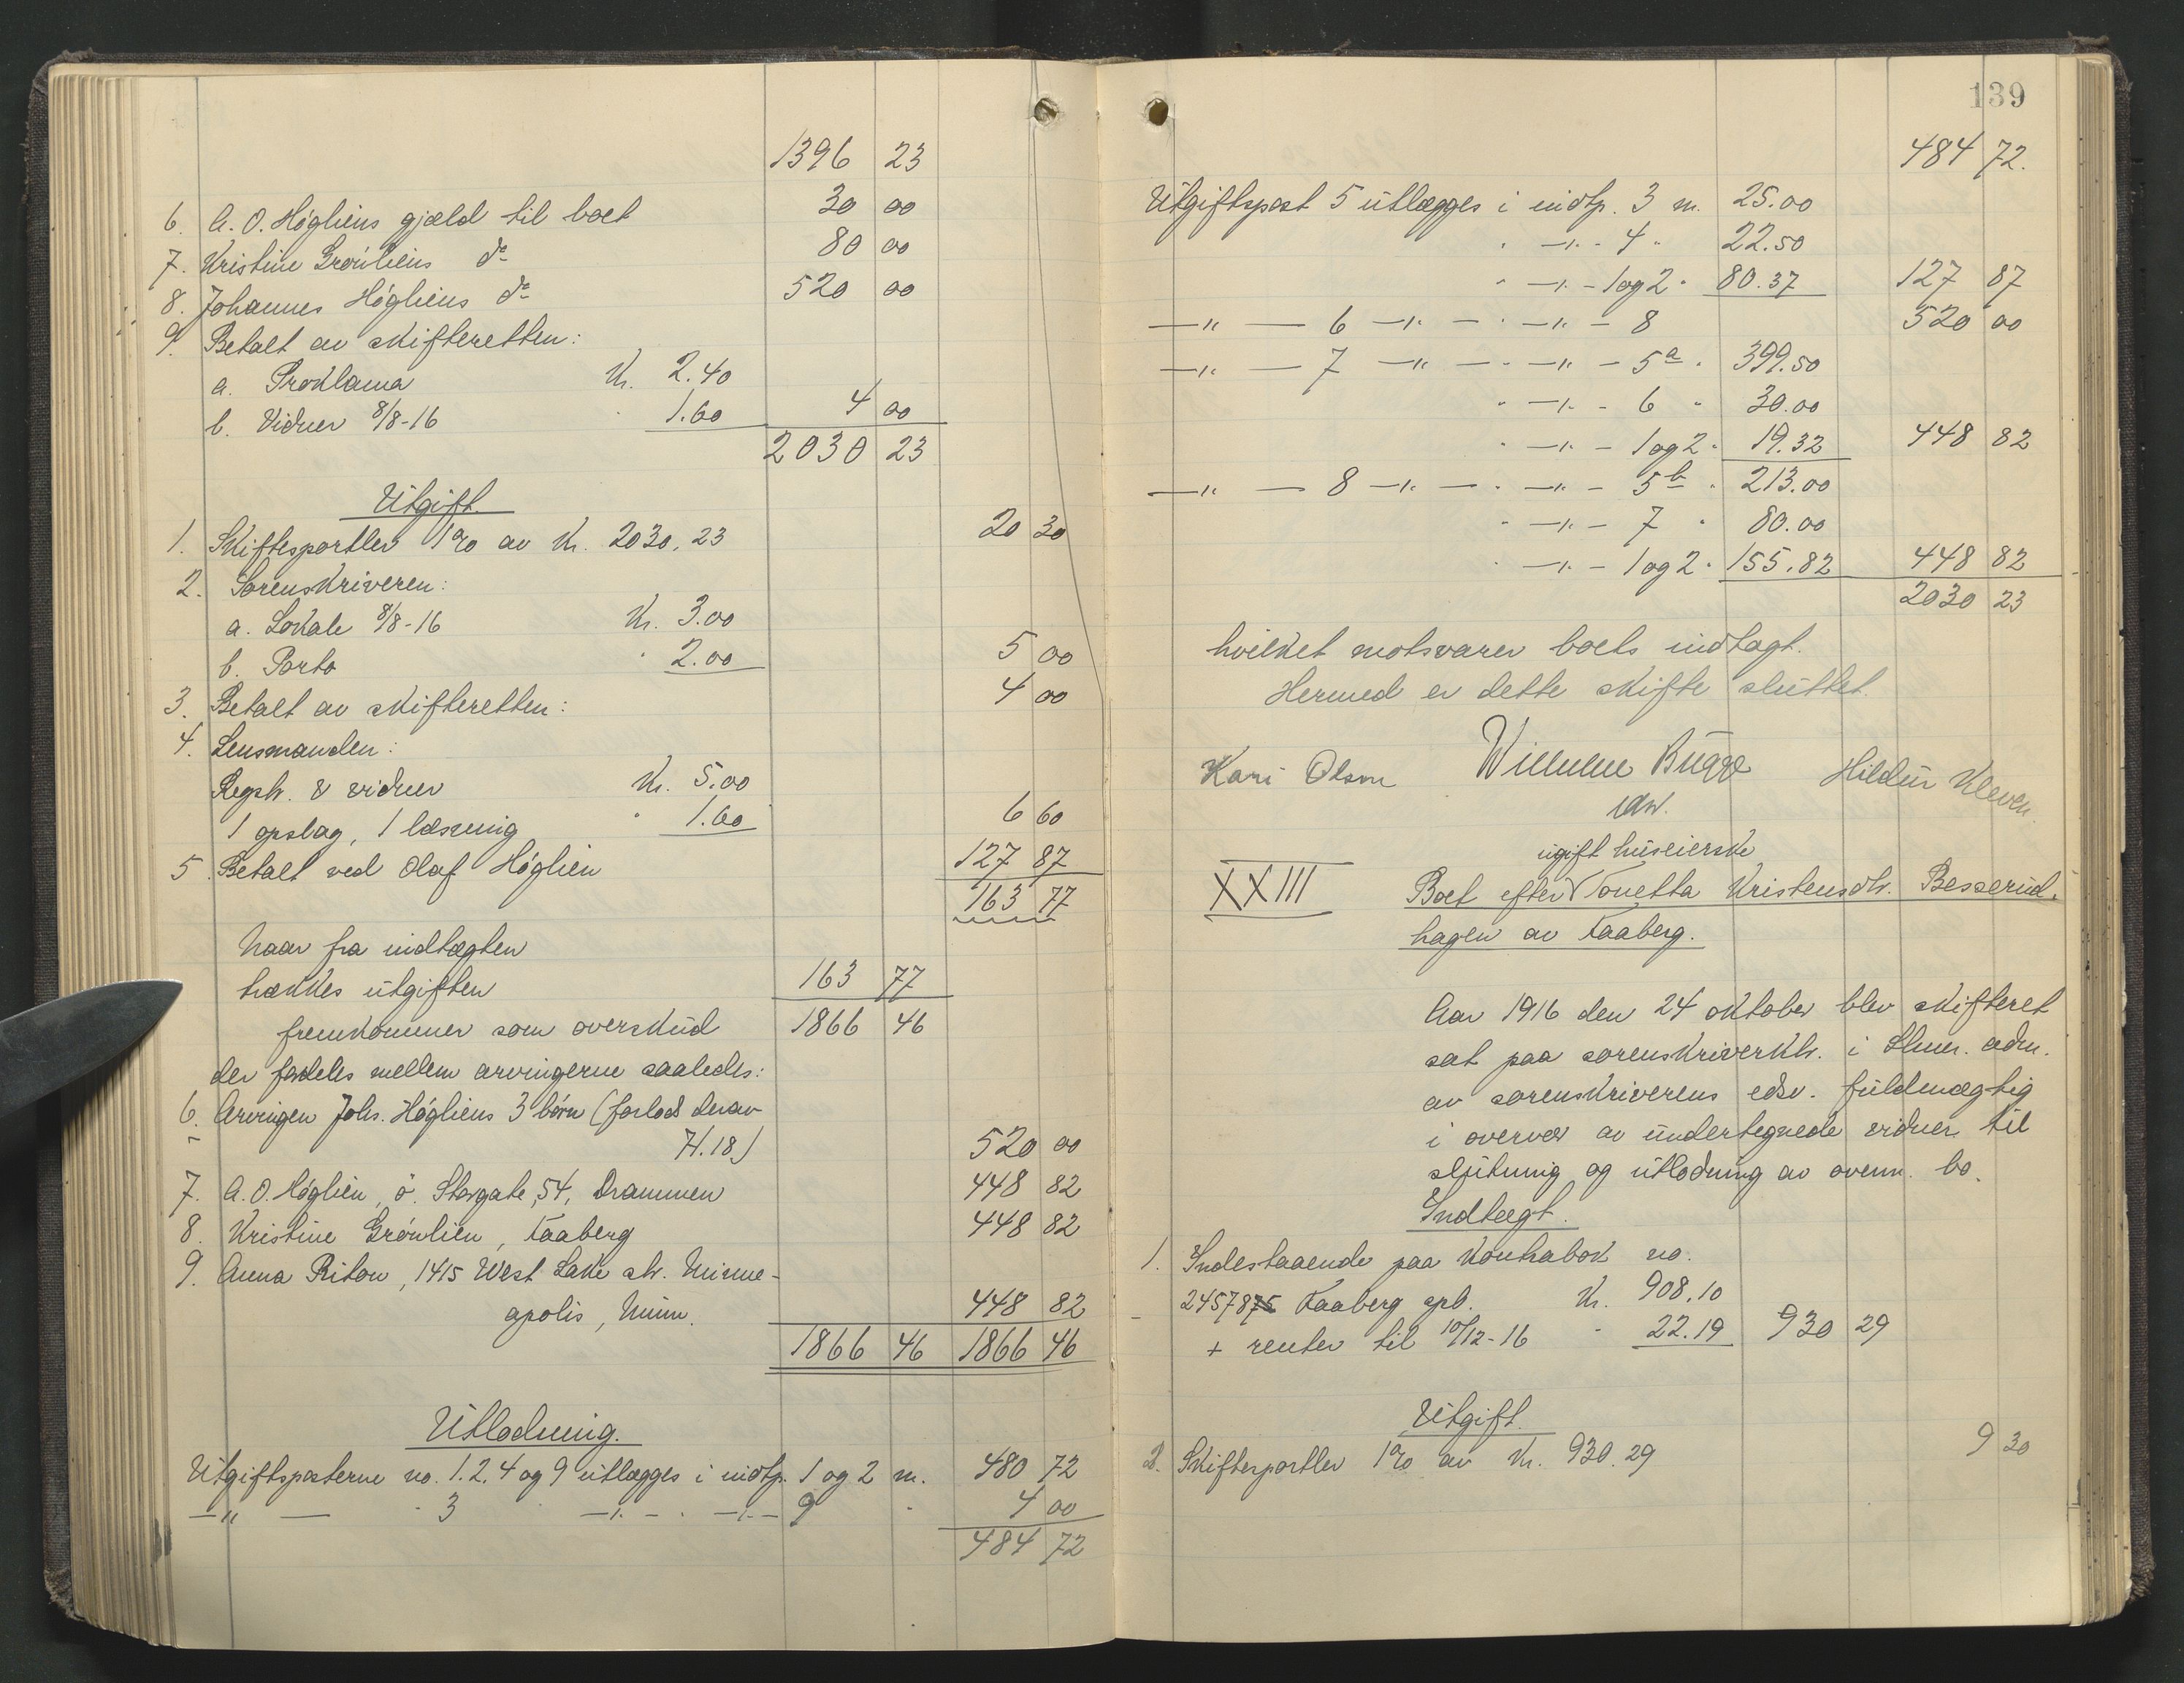 1396 23
6. A. O. Høgliens gjæld til boet 30 00
7. Kristine Grønliens do 80 00
8. Johannes Høgliens do 520 00
9. Betalt av skifteretten:
a. Proklama Kr. 2.40
b. Vidner 8/8-16 " 1.60 4 00
2030 23
Utgift
1. Skiftesportler 1% av Kr. 2030,23 20 30
2. Sorenskriveren:
a. Lokale 8/8-16 Kr. 3.00
b. Porto " 2.00 5 00
3. Betalt av skifteretten: 4 00
4. Lensmanden:
Regstr. & vidner Kr. 5.00
1 opslag, 1 læsning " 1.60 6 60
5. Betalt ved Olaf Høglien 127 87
163 77
Naar fra indtægten
trækkes utgiften 163 77
fremkommer som overskud 1866 46
der fordeles mellem arvingerne saaledes:
6. Arvingen Johs. Høgliens 3 børn (forlods derav
H. 18) 520 00
7. A. O. Høglien, ø. Storgate, 54, Drammen 448 82
8. Kristine Grønlien, Faaberg 448 82
9. Anna Riton, 1415 West Lake str. Minne-
apolis, Minn. 448 82
1866 46 1866 46
Utlodning.
Utgiftsposterne no. 1.2.4 og 9 utlægges i indtp. 1 og 2 m. 480 72
—"— " 3 —"— " —"— 9 " 4 00
484 72
139
484 72.
Utgiftspost 5 utlægges i indtp. 3 m. 25.00
" —"— 4 " 22.50
" —"— 1 og 2 " 80.37 127 87
—"— 6 —"— " —"— 8 520 00
—"— 7 —"— " —"— 5a " 399.50
" —"— 6 " 30.00
" —"— 1 og 2 " 19.32 448 82
—"— 8 —"— " —"— 5b " 213.00
" —"— 7 " 80.00
" —"— 1 og 2 " 155.82 448 82
2030 23
hvilket motsvarer boets indtægt.
Hermed er dette skifte sluttet.
Kari Olsen Wilhelm Bugge Hildur Kleven.
edsv.
ugift huseierske
XXIII Boet efter V Tonetta Kristensdtr. Besserud-
hagen av Faaberg.
Aar 1916 den 24 oktober blev skifteret
sat paa sorenskriverktr. i Lhmr. adm.
av sorenskriverens edsv. fuldmægtig
i overvær av undertegnede vidner til
slutning og utlodning av ovenn. bo.
Indtægt.
1. Indestaaende paa Kontrabok no.
2457875 Faaberg spb. Kr. 908.10
+ renter til 10/12-16 " 22.19 930 29
Utgift.
2. Skiftesportler 1% av Kr. 930.29 9 30